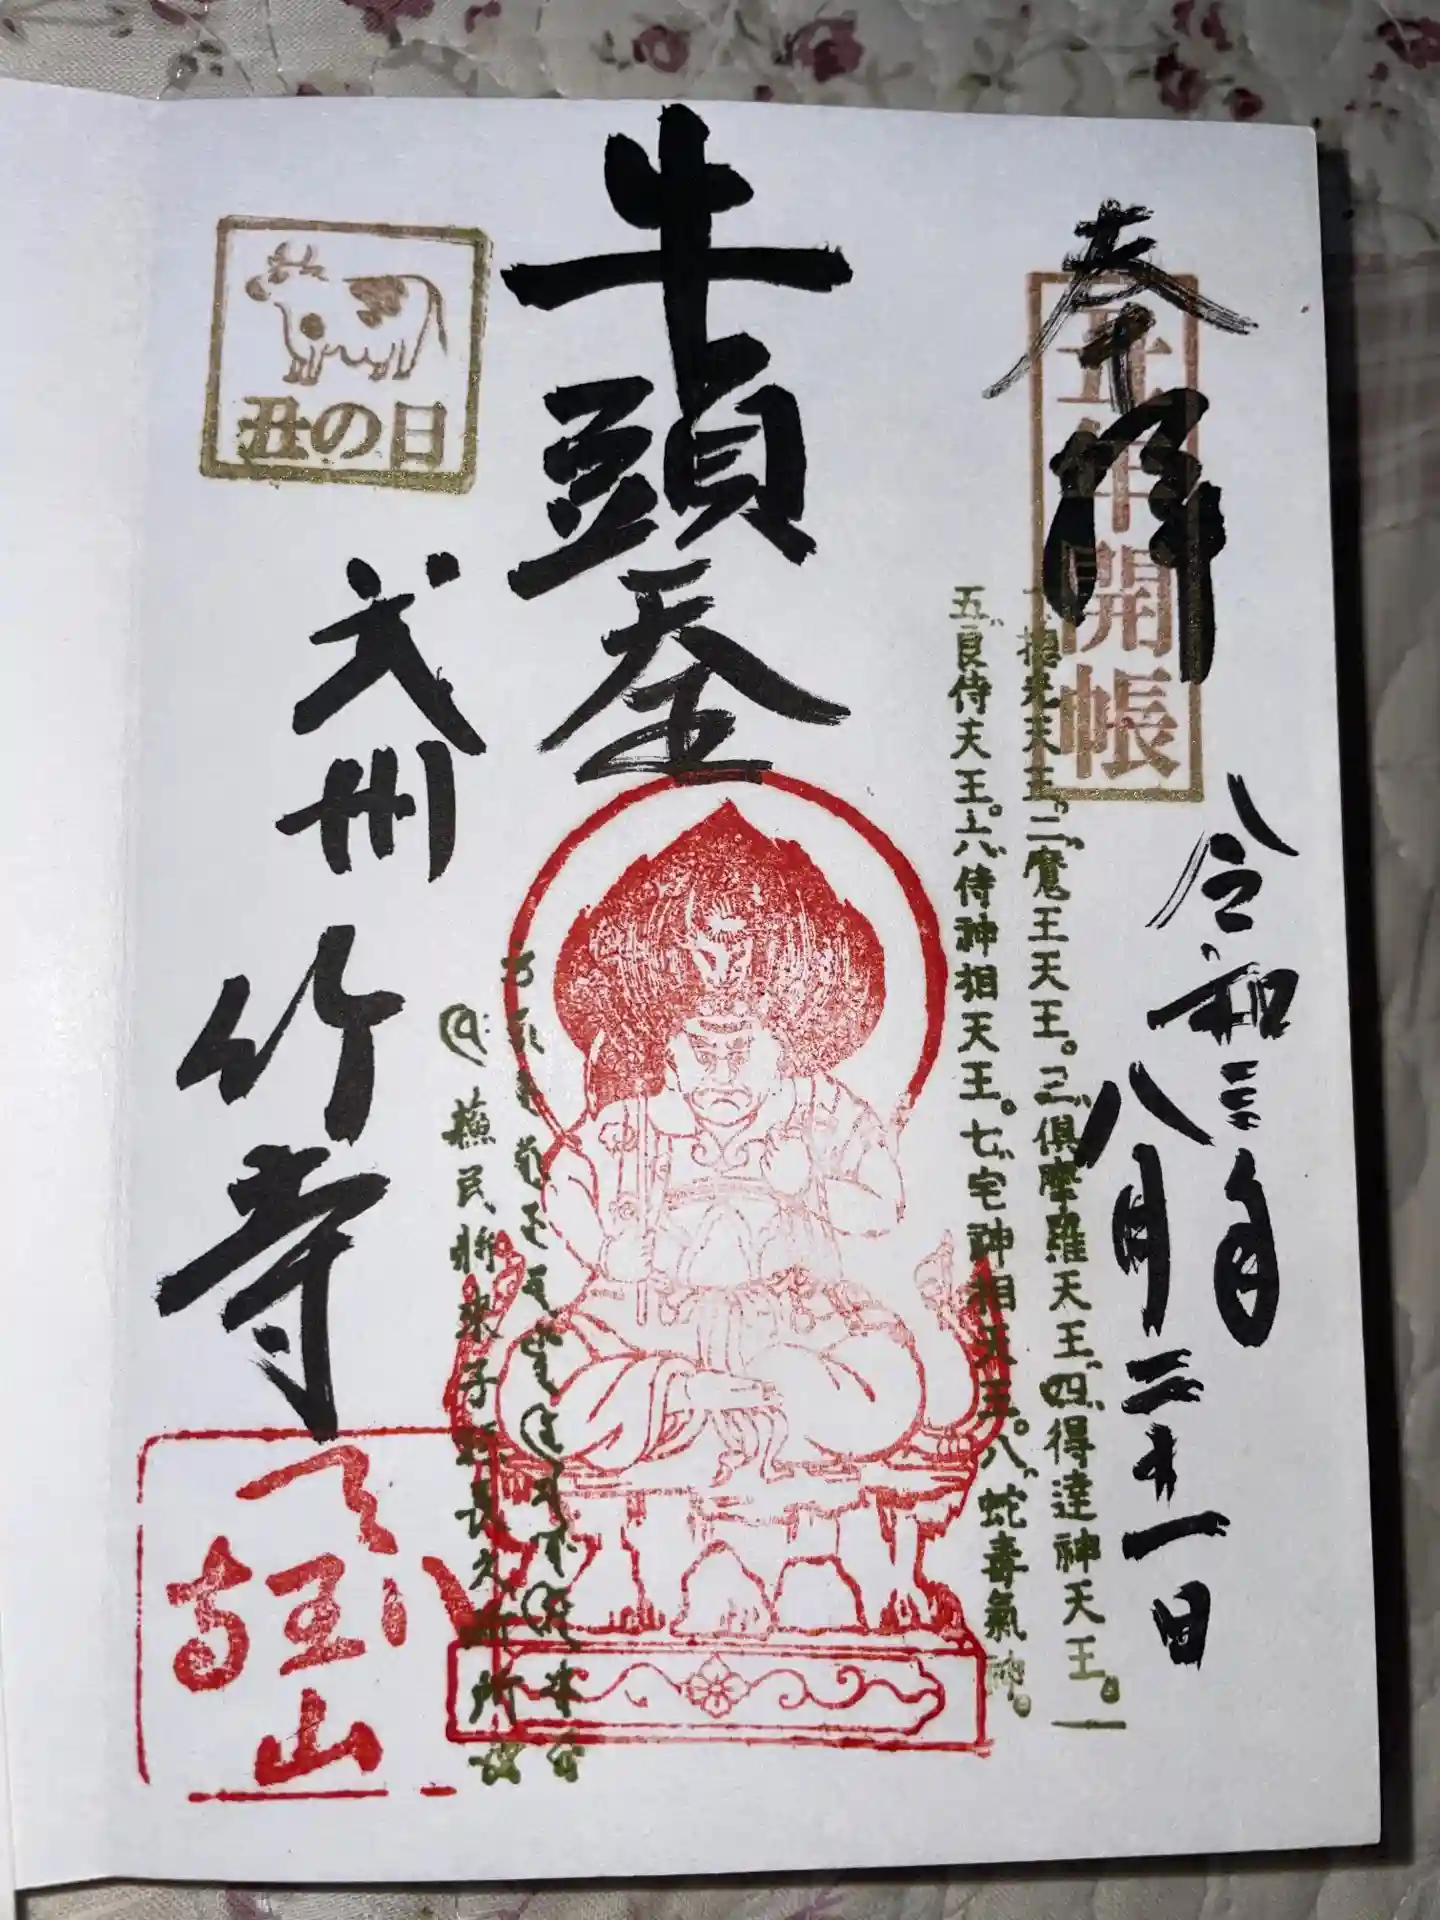 奉拝
丑年開帳
令和三年
八月二十一日
相光天王。二、魔王天王。三、倶摩羅天王。四、得達神天王。
五、良侍天王。六、侍神相天王。七、宅神相天王。八、蛇毒氣神。
牛頭天王
蘇民将来子孫長久
武州
竹寺
丑の日
八王山